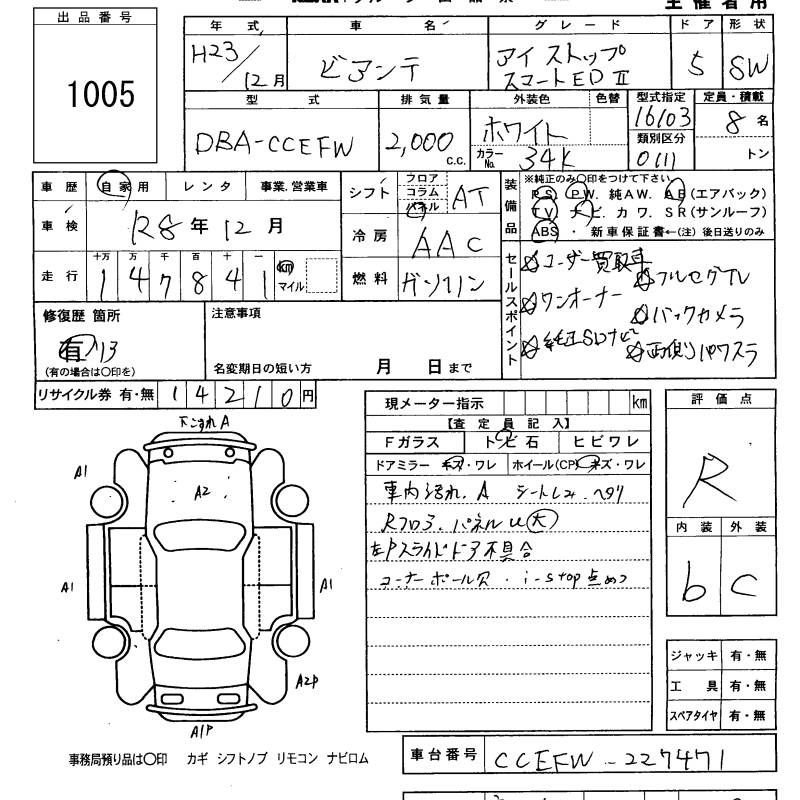 出品番号
1005
年式 車名 グレード ドア 形状
H23/12月 ビアンテ アイストップ スマートED II 5 SW
型式 排気量 外装色 色替 型式指定 定員・積載
DBA-CCEFW 2,000 c.c. ホワイト 16103 8名
カラーNo. 34K 類別区分 0111 トン
車歴 自家用 レンタ 事業.営業車
シフト フロア コラム パネル AT
装備品
※純正のみ〇印をつけて下さい
P.S. P.W. 純A.W. A.B(エアバック)
T.V. ナビ. カワ. S.R(サンルーフ)
ABS ・ 新車保証書←(注) 後日送りのみ
車検 R8年12月
冷房 AAC
走行 十万 万 千 百 十 一 km マイル
147841
燃料 ガソリン
セールスポイント
ユーザー買取車
フルセグTV
ワンオーナー
バックカメラ
純正SDナビ
両側パワスラ
修復歴 箇所
有 13
(有の場合は〇印を)
注意事項
名変期日の短い方 月 日まで
リサイクル券 有・無 14210円
現メーター指示 km
評価点
R
【査定員記入】
Fガラス トビ石 ヒビワレ
ドアミラー キズ・ワレ ホイール(CP) キズ・ワレ
車内汚れ. A シートしみ. ヘタリ
Rフロア. パネルU大
左Pスライドドア不具合
コーナーポール穴. i-stop点めつ
内装 外装
b C
下こすれA
A1
A2
A1
A1
A2P
A1P
ジャッキ 有・無
工具 有・無
スペアタイヤ 有・無
事務局預り品は〇印 カギ シフトノブ リモコン ナビロム
車台番号 CCEFW-227471